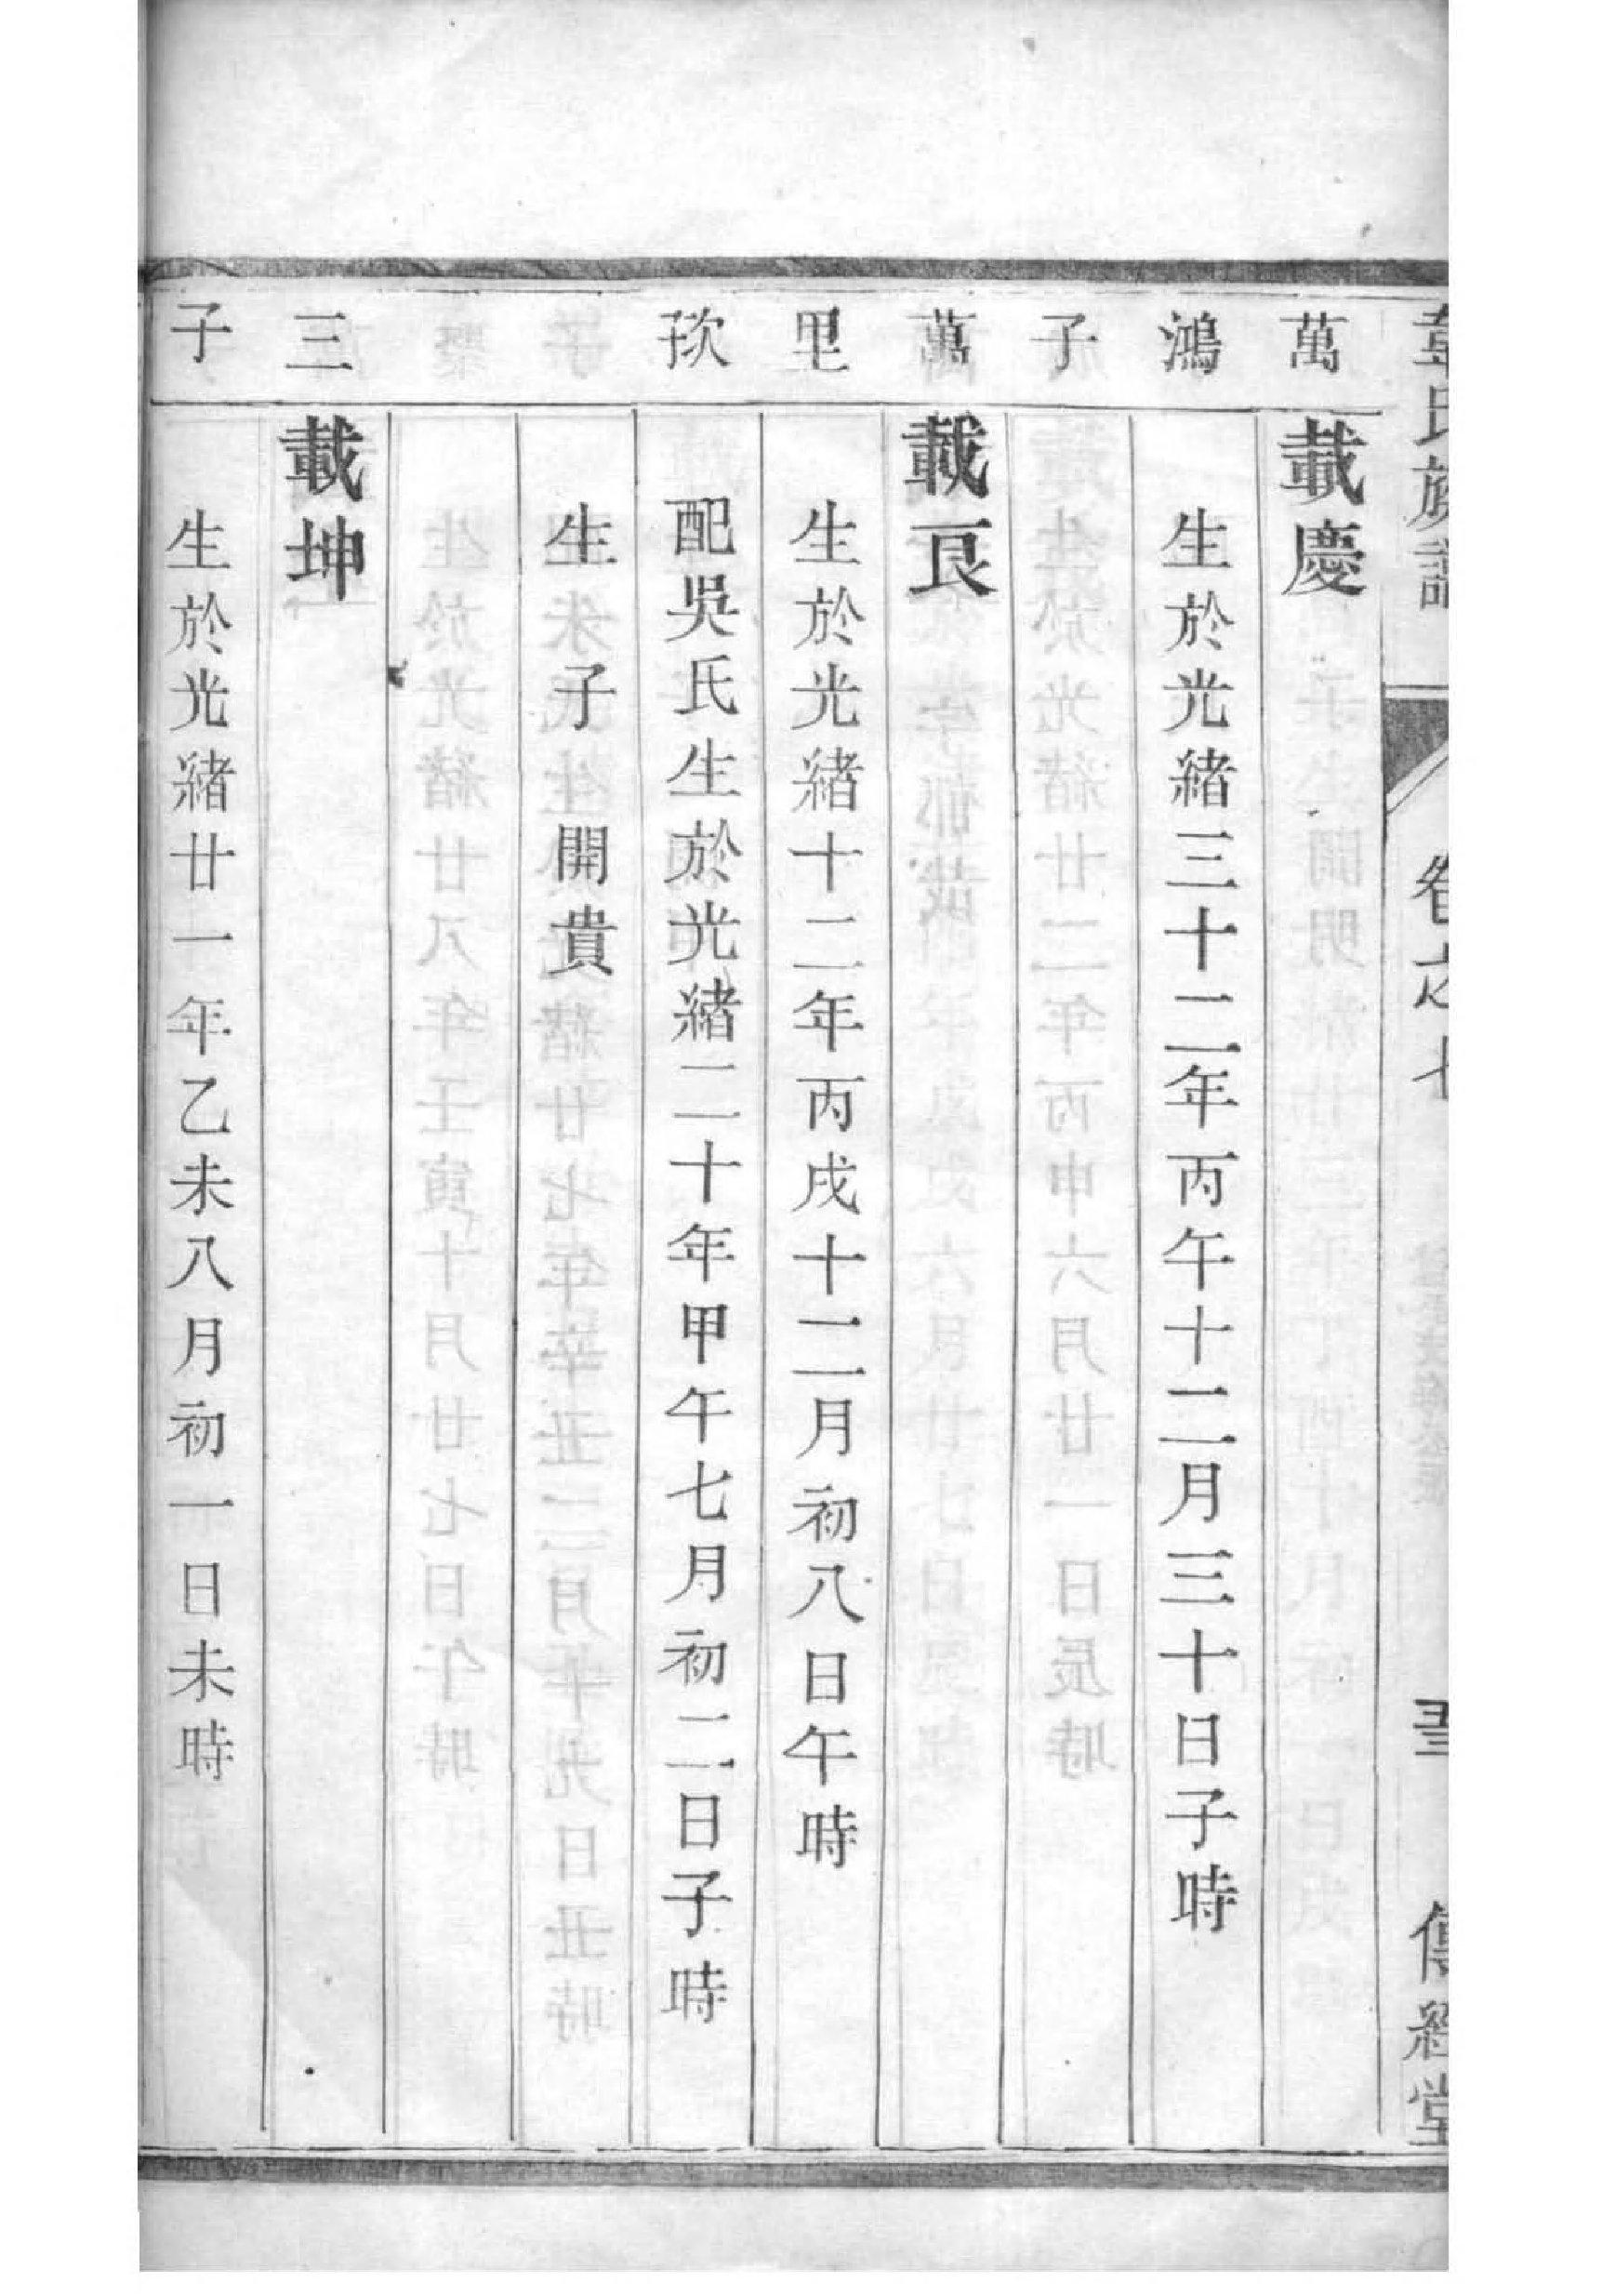 氏族譜
卷之七
傳經堂
萬鴻子
載慶
生於光緒三十二年丙午十二月三十日子時
萬里次子
載艮
生於光緒十二年丙戌十二月初八日午時
配吳氏生於光緒二十年甲午七月初二日子時
生子 開貴
三子
載坤
生於光緒廿一年乙未八月初一日未時